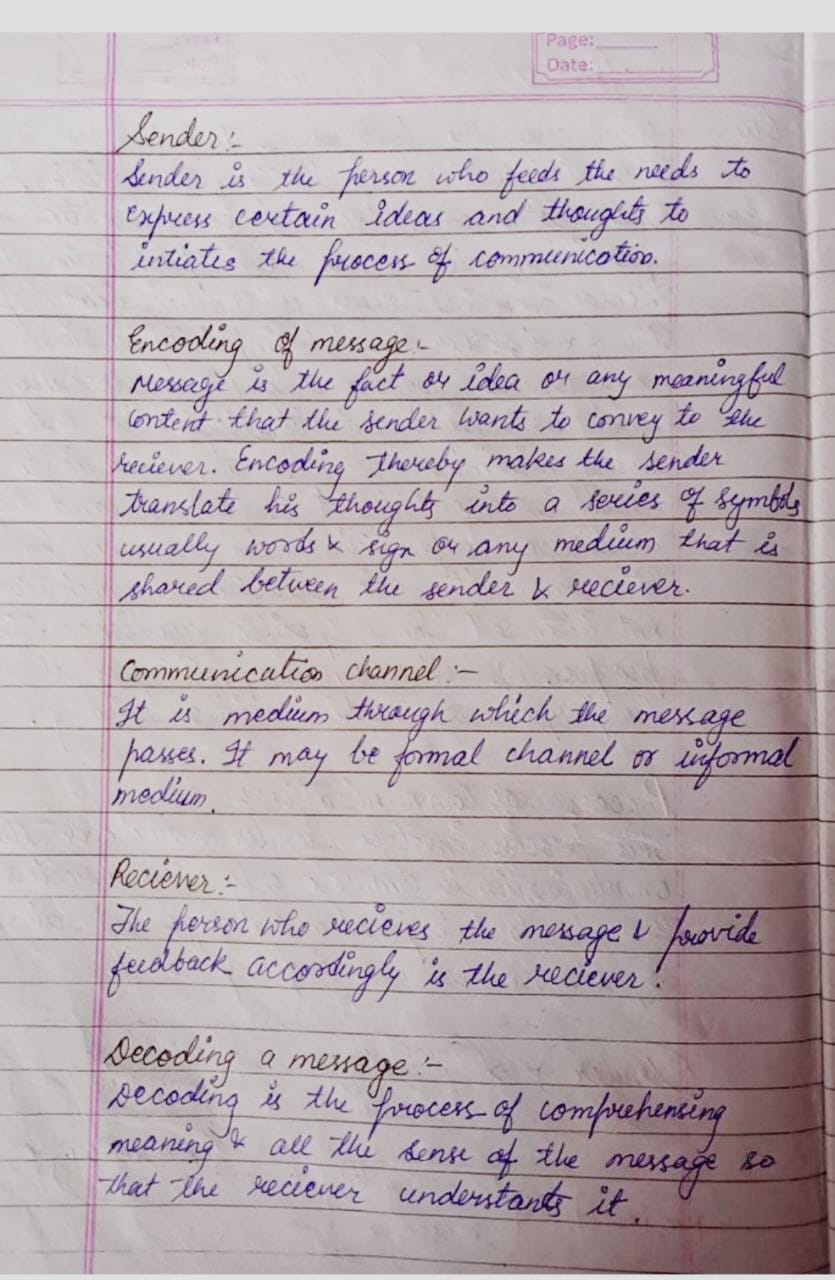 Page:
Date:
Sender:-
Sender is the person who feeds the needs to
express certain ideas and thoughts to
intiates the process of communication.
Encoding of message:-
Message is the fact or idea or any meaningful
content that the sender wants to convey to the
reciever. Encoding thereby makes the sender
translate his thoughts into a series of symbols
usually words & sign or any medium that is
shared between the sender & reciever.
Communication channel:-
It is medium through which the message
passes. It may be formal channel or informal
medium.
Reciever:-
The person who recieves the message & provide
feedback accordingly is the reciever.
Decoding a message:-
Decoding is the process of comprehensing
meaning & all the sense of the message so
that the reciever understants it.